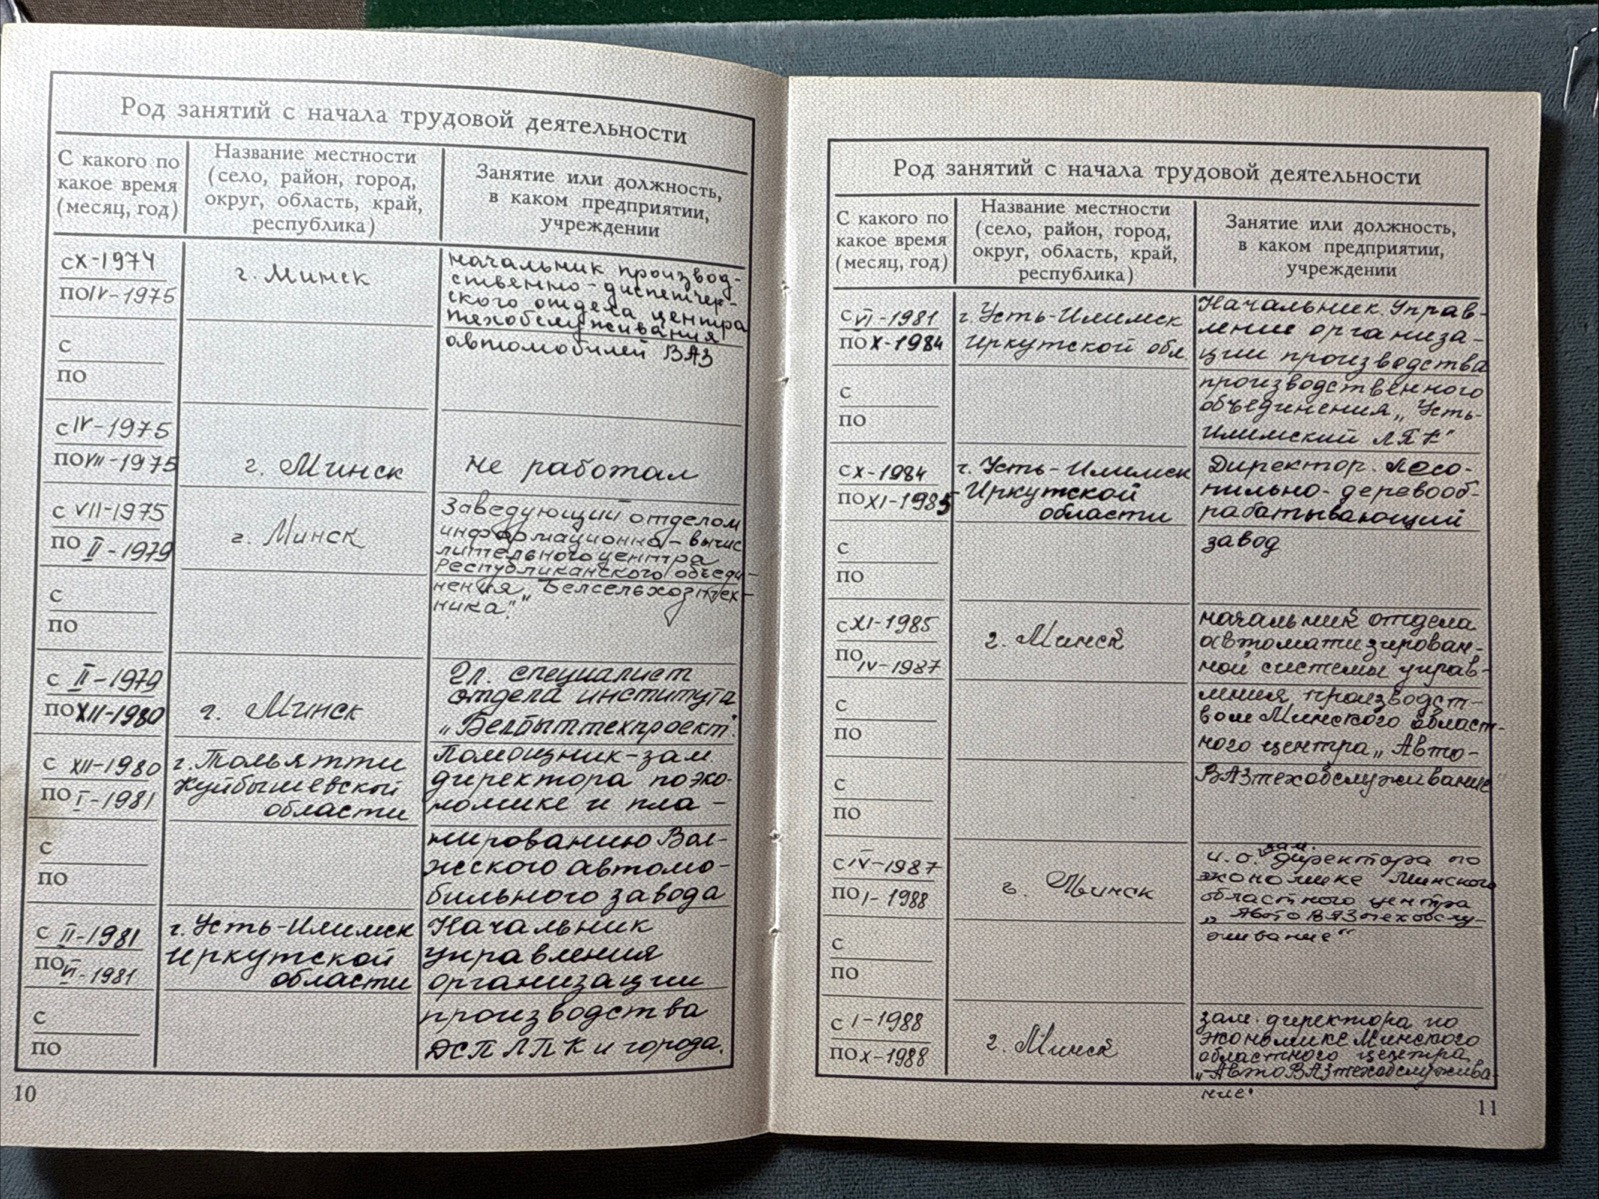 Род занятий с начала трудовой деятельности
С какого по
какое время
(месяц, год)
Название местности
(село, район, город,
округ, область, край,
республика)
Занятие или должность,
в каком предприятии,
учреждении
с X-1974
по IV-1975
г. Минск
начальник производ-
ственно-диспетчер-
ского отдела центра
техобслуживания
автомобилей ВАЗ
с
по
с IV-1975
по VII-1975
г. Минск
не работал
с VII-1975
по II-1979
г. Минск
Заведующий отделом
информационно-вычис
лительного центра
Республиканского объеди-
нения „Белсельхозтех-
ника".
с
по
с II-1979
по XII-1980
г. Минск
Гл. специалист
отдела института
„Белбыттехпроект".
с XII-1980
по I-1981
г. Тольятти
Куйбышевской
области
Помощник-зам.
директора по эко-
номике и пла-
нированию Вол-
жского автомо-
бильного завода
с
по
с II-1981
по VI-1981
г. Усть-Илимск
Иркутской
области
Начальник
управления
организации
производства
ДСП ЛПК и города.
с
по
10
Род занятий с начала трудовой деятельности
С какого по
какое время
(месяц, год)
Название местности
(село, район, город,
округ, область, край,
республика)
Занятие или должность,
в каком предприятии,
учреждении
с VI-1981
по X-1984
г. Усть-Илимск
Иркутской обл.
Начальник Управ-
ление организа-
ции производства
производственного
объединения „Усть-
Илимский ЛПК"
с
по
с X-1984
по XI-1985
г. Усть-Илимск
Иркутской
области
Директор. Лесо-
пильно-деревооб-
рабатывающий
завод
с
по
с XI-1985
по IV-1987
г. Минск
начальник отдела
автоматизирован-
ной системы управ-
ления производст-
вом Минского област-
ного центра „Авто-
ВАЗтехобслуживание"
с
по
с
по
с IV-1987
по I-1988
г. Минск
зам.
и.о. директора по
экономике Минского
областного центра
„АвтоВАЗтехобслу-
живание"
с
по
с I-1988
по X-1988
г. Минск
зам. директора по
экономике Минского
областного центра
„АвтоВАЗтехобслужива-
ние"
11